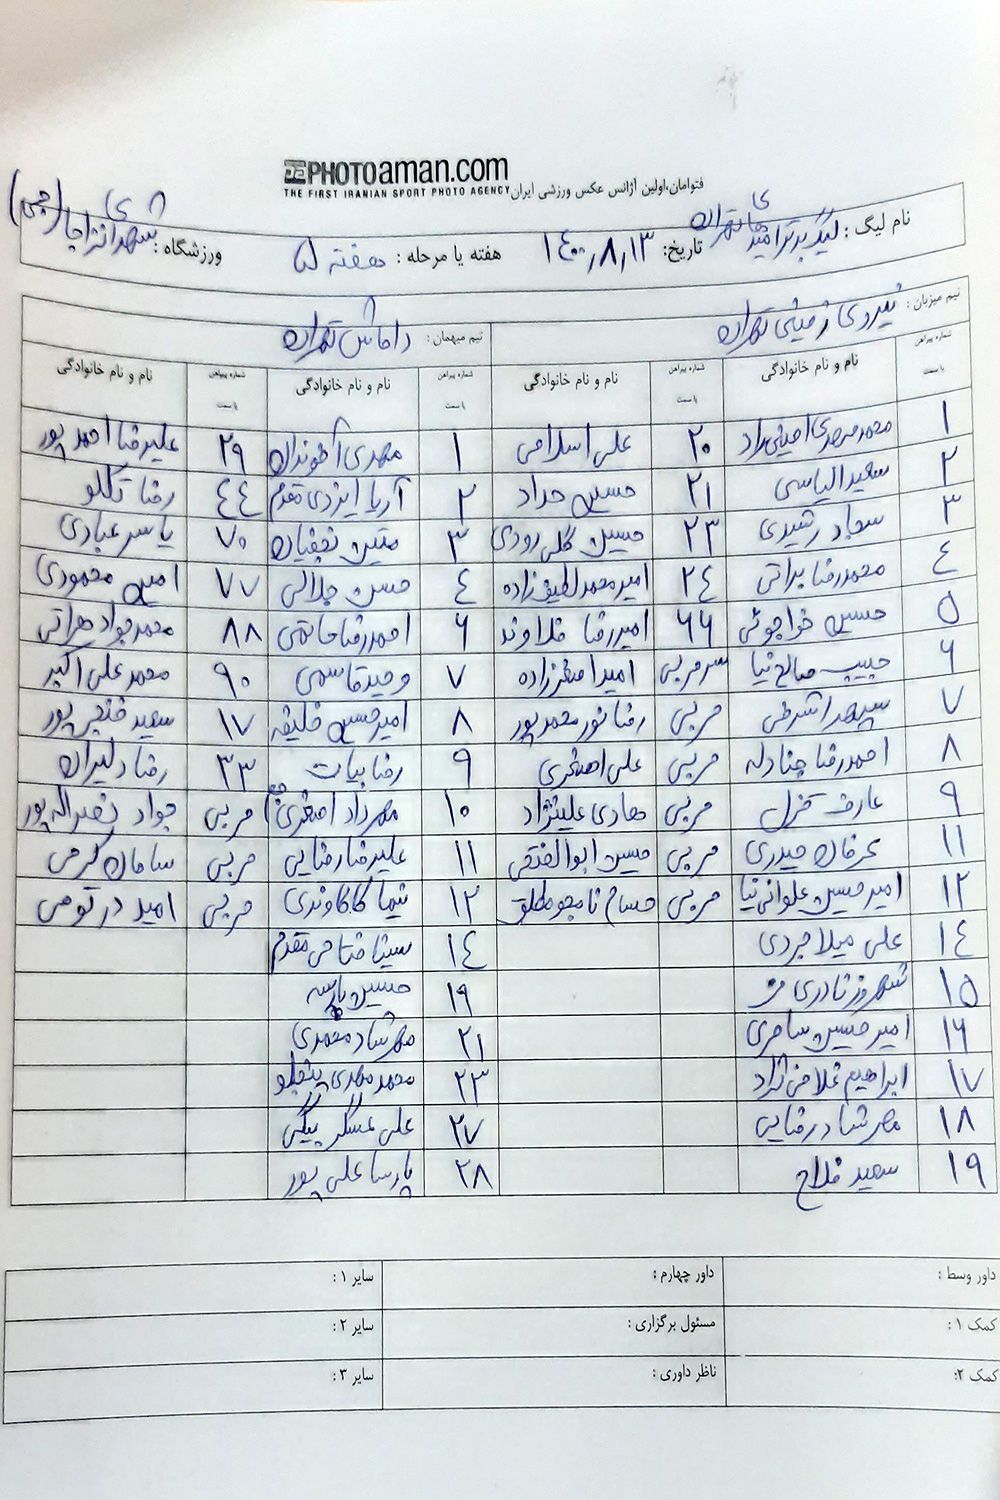 PHOTOaman.com
THE FIRST IRANIAN SPORT PHOTO AGENCY فتوامان،اولین آژانس عکس ورزشی ایران
نام لیگ : لیگ برتر امیدهای تهران تاریخ: ۱۴۰۰٫۸٫۱۳ هفته یا مرحله : هفته ۵ ورزشگاه :
تیم میزبان : نیروی زمینی تهران تیم میهمان : داماش تهران
شماره پیراهن یا سمت نام و نام خانوادگی شماره پیراهن یا سمت نام و نام خانوادگی شماره پیراهن یا سمت نام و نام خانوادگی شماره پیراهن یا سمت نام و نام خانوادگی
۱ محمدمهدی امینی راد ۲۰ علی اسلامی ۱ مهدی آخوندان ۲۹ علیرضا احمدپور
۲ سعید الیاسی ۲۱ حسین حداد ۲ آریا ایزدی مقدم ۴۴ رضا تکلو
۳ سجاد رشیدی ۲۳ حسین گلی رودی ۳ متین نجفیان ۷۰ یاسر عبادی
۴ محمدرضا براتی ۲۴ امیرمحمد لطیف زاده ۴ حسن جلالی ۷۷ امین محمودی
۵ حسین خواجوئی ۶۶ امیررضا فلاوند ۶ احمدرضا حاتمی ۸۸ محمدجواد هراتی
۶ حبیب صالح نیا سرمربی امیر اصغرزاده ۷ وحید قاسمی ۹۰ محمد علی اکبر
۷ سپهر اشرفی مربی رضا نورمحمدپور ۸ امیرحسین خلیفه ۱۷ سعید خنجرپور
۸ احمدرضا چنادله مربی علی اصغری ۹ رضا بیات ۳۳ رضا دلیران
۹ عارف قزل مربی هادی علینژاد ۱۰ مهرداد اصغری مربی جواد نصراله پور
۱۱ عرفان حیدری مربی حسین ابوالفتحی ۱۱ علیرضا رضایی مربی سامان کرمی
۱۲ امیرحسین علوانی نیا مربی حسام نامجو مطلق ۱۲ نیما کاکاوندی مربی امید درتومی
۱۴ علی میلاجردی ۱۴ سینا فتاحی مقدم
۱۵ شهروز نادری ۱۹ حسین پارسه
۱۶ امیرحسین سامری ۲۱ مهرشاد محمدی
۱۷ ابراهیم غلامی نژاد ۲۳ محمدمهدی پنجلو
۱۸ مهرشاد رضایی ۲۷ علی عسگر بیگی
۱۹ سعید فلاح ۲۸ پارسا علی پور
داور وسط : داور چهارم : سایر ۱ :
کمک ۱ : مسئول برگزاری : سایر ۲ :
کمک ۲: ناظر داوری : سایر ۳ :